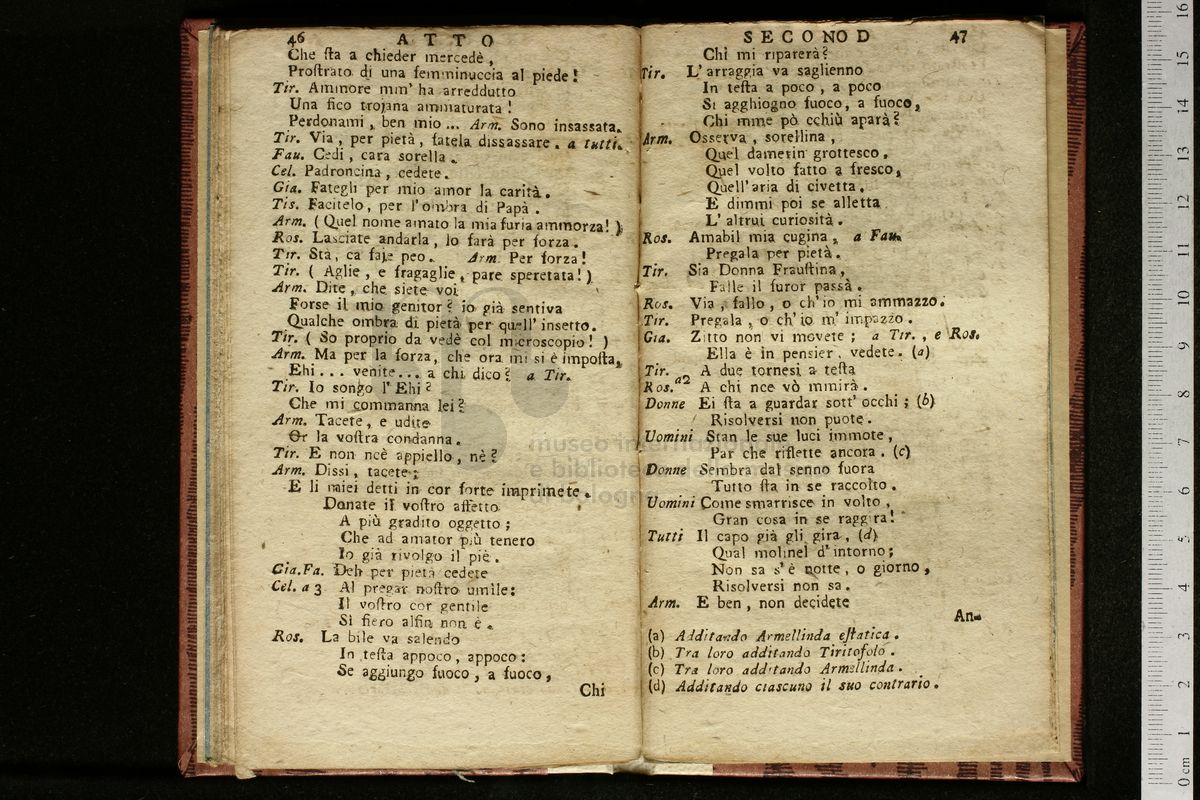 46 ATTO
Che sta a chieder mercedè,
Prostrato di una femminuccia al piede!
Tir. Ammore mm' ha arreddutto
Una fico trojana ammaturata!
Perdonami, ben mio ... Arm. Sono insassata.
Tir. Via, per pietà, fatela dissassare. a tutti.
Fau. Cedi, cara sorella.
Cel. Padroncina, cedete.
Gia. Fategli per mio amor la carità.
Tis. Facitelo, per l'ombra di Papà.
Arm. (Quel nome amato la mia furia ammorza!)
Ros. Lasciate andarla, lo farà per forza.
Tir. Sta, ca faje peo. Arm. Per forza!
Tir. (Aglie, e fragaglie, pare speretata!)
Arm. Dite, che siete voi
Forse il mio genitor? io già sentiva
Qualche ombra di pietà per quell' insetto.
Tir. (So proprio da vedè col microscopio!)
Arm. Ma per la forza, che ora mi si è imposta,
Ehi... venite... a chi dico? a Tir.
Tir. Io songo l'Ehi?
Che mi commanna lei?
Arm. Tacete, e udite
Or la vostra condanna.
Tir. E non ncè appiello, nè?
Arm. Dissi, tacete;
E li miei detti in cor forte imprimete.
Donate il vostro affetto
A più gradito oggetto;
Che ad amator più tenero
Io già rivolgo il piè.
Gia.Fa. Deh per pietà cedete
Cel. a 3 Al pregar nostro umile:
Il vostro cor gentile
Sì fiero alfin non è.
Ros. La bile va salendo
In testa appoco, appoco:
Se aggiungo fuoco, a fuoco,
Chi
SECONOD 47
Chi mi riparerà?
Tir. L'arraggia va saglienno
In testa a poco, a poco
Si agghiogno fuoco, a fuoco,
Chi mme pò cchiù aparà?
Arm. Osserva, sorellina,
Quel damerin grottesco,
Quel volto fatto a fresco,
Quell' aria di civetta.
E dimmi poi se alletta
L'altrui curiosità.
Ros. Amabil mia cugina, a Fau.
Pregala per pietà.
Tir. Sia Donna Fraustina,
Falle il furor passà.
Ros. Via, fallo, o ch'io mi ammazzo.
Tir. Pregala, o ch'io m'impazzo.
Gia. Zitto non vi movete; a Tir., e Ros.
Ella è in pensier, vedete. (a)
Tir. A due tornesi a testa
Ros. a2 A chi nce vò mmirà.
Donne Ei sta a guardar sott' occhi; (b)
Risolversi non puote.
Uomini Stan le sue luci immote,
Par che riflette ancora. (c)
Donne Sembra dal senno fuora
Tutto sta in se raccolto.
Uomini Come smarrisce in volto,
Gran cosa in se raggira!
Tutti Il capo già gli gira, (d)
Qual molinel d'intorno;
Non sa s'è notte, o giorno,
Risolversi non sa.
Arm. E ben, non decidete
An-
(a) Additando Armellinda estatica.
(b) Tra loro additando Tiritofolo.
(c) Tra loro additando Armellinda.
(d) Additando ciascuno il suo contrario.